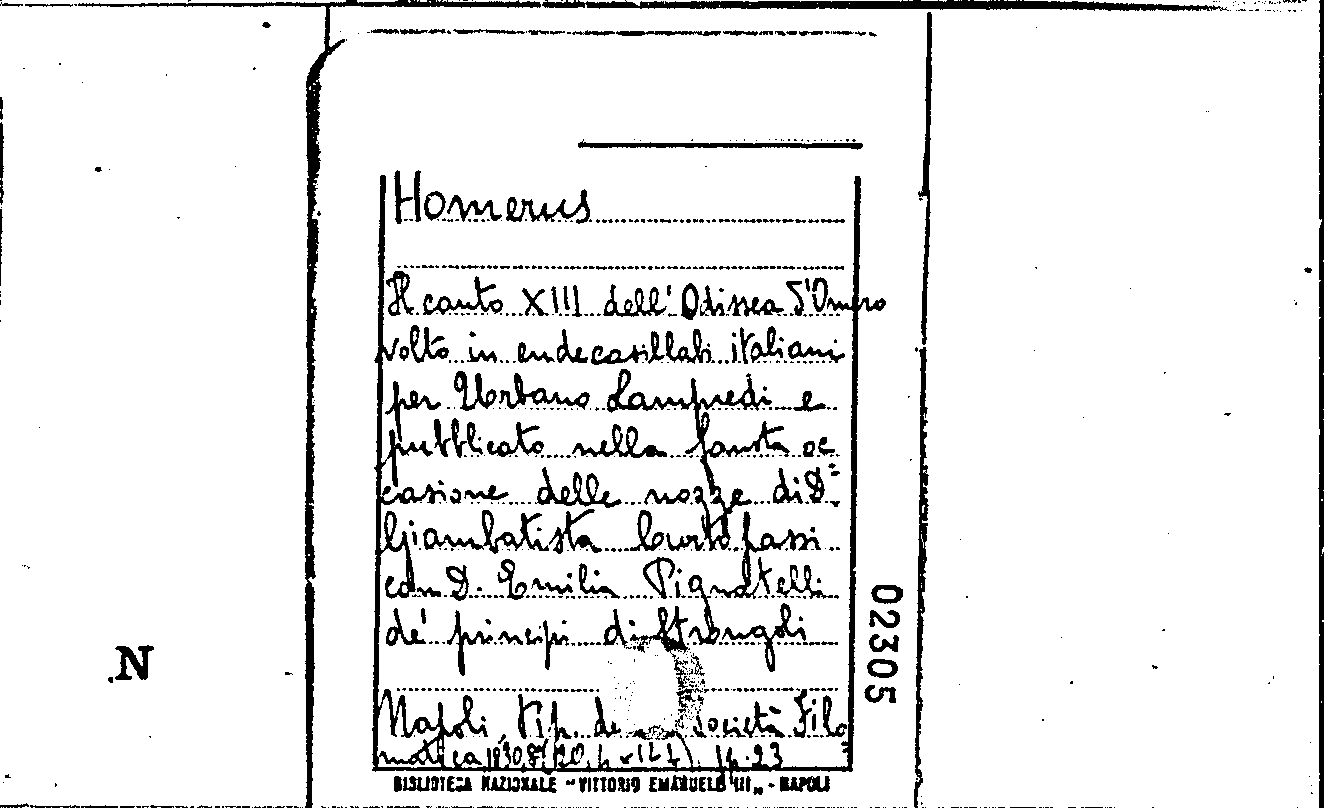 Homerus
Il canto XIII dell'Odissea d'Omero
volto in endecasillabi italiani
per Urbano Lampredi e
pubblicato nella fausta oc
casione delle nozze di D.
Giambatista Curtopassi
con D. Emilia Pignatelli
de' principi di Strongoli
Napoli, Tip. de società Filo=
matica 1830, 8° pp. 23
BIBLIOTECA NAZIONALE "VITTORIO EMANUELE III" - NAPOLI
02305
N